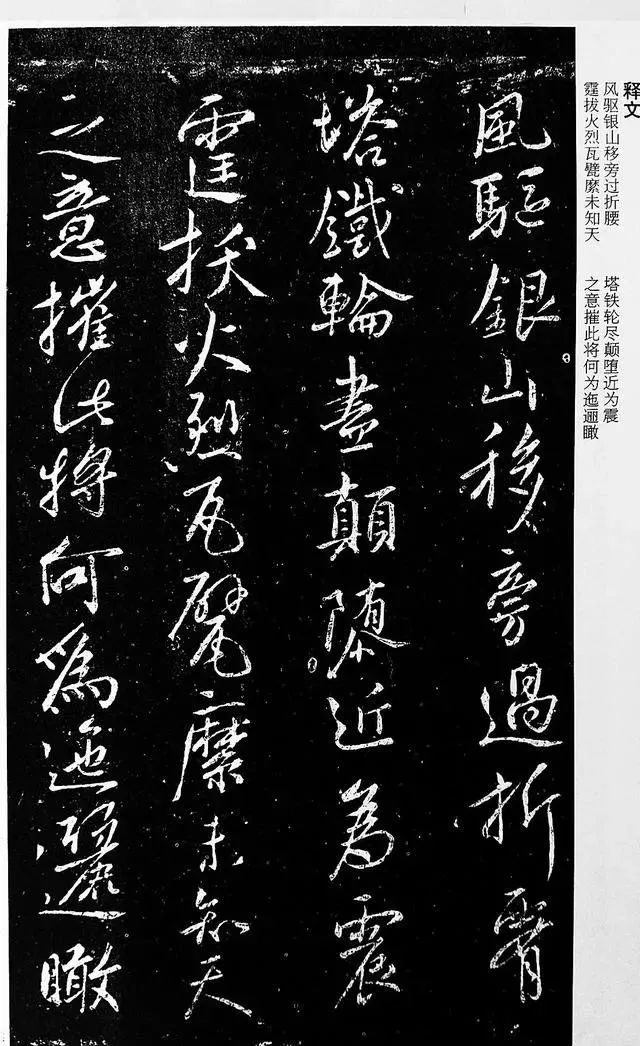 释文
风驱银山移旁过折腰
塔铁轮尽颠堕近为震
霆拔火烈瓦甓縻未知天
之意摧此将何为迤逦瞰
風驅銀山移旁過折腰
塔鐵輪盡顛堕近為震
霆拔火烈瓦甓縻未知天
之意摧此將何爲迤邐瞰